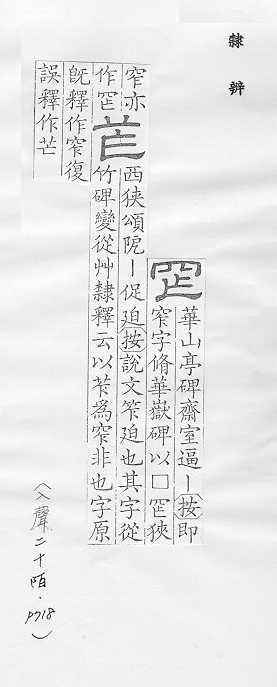 隸辨
華山亭碑齋室逼丨按即
窄字脩華嶽碑以□狹
窄亦
作
苲
西狹頌阸丨促迫按說文笮迫也其字從
竹碑變從艸隸釋云以苲爲窄非也字原
旣釋作窄復
誤釋作芒
(入聲二十陌．P718)